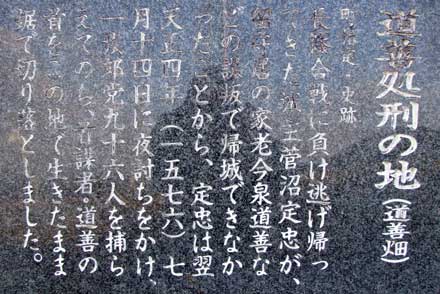 道善処刑の地(道善畑)
町指定・史跡
長篠合戦に負け逃げ帰っ
てきた城主菅沼定忠が、
留守居の家老今泉道善な
どの謀叛で帰城できなか
ったことから、定忠は翌
天正四年(一五七六)七
月十四日に夜討ちをかけ、
一族郎党九十六人を捕ら
えてのち、首謀者・道善の
首をこの地で生きたまま
鋸で切り落としました。